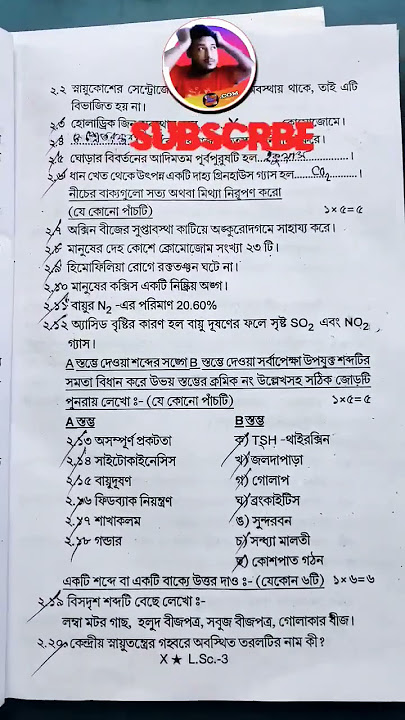 ২.২ স্নায়ুকোশের সেন্ট্রোজো অবস্থায় থাকে, তাই এটি
বিভাজিত হয় না।
২.৩ হোলাড্রিক জিন ক্রোমোজোমে।
২.৪
SUBSCRBE
.COM
২.৫ ঘোড়ার বিবর্তনের আদিমতম পূর্বপুরুষটি হল..............................।
২.৬ ধান খেত থেকে উৎপন্ন একটি দাহ্য গ্রিনহাউস গ্যাস হল....CO₂..........।
নীচের বাক্যগুলো সত্য অথবা মিথ্যা নিরূপণ করো
(যে কোনো পাঁচটি) ১×৫=৫
২.৭ অক্সিন বীজের সুপ্তাবস্থা কাটিয়ে অঙ্কুরোদগমে সাহায্য করে।
২.৮ মানুষের দেহ কোশে ক্রোমোজোম সংখ্যা ২৩ টি।
২.৯ হিমোফিলিয়া রোগে রক্ততঞ্চন ঘটে না।
২.১০ মানুষের কক্সিস একটি নিষ্ক্রিয় অঙ্গ।
২.১১ বায়ুর N₂ -এর পরিমাণ 20.60%
২.১২ অ্যাসিড বৃষ্টির কারণ হল বায়ু দূষণের ফলে সৃষ্ট SO₂ এবং NO₂
গ্যাস।
A স্তম্ভে দেওয়া শব্দের সঙ্গে B স্তম্ভে দেওয়া সর্বাপেক্ষা উপযুক্ত শব্দটির
সমতা বিধান করে উভয় স্তম্ভের ক্রমিক নং উল্লেখসহ সঠিক জোড়টি
পুনরায় লেখো ঃ- (যে কোনো পাঁচটি) ১×৫=৫
A স্তম্ভ B স্তম্ভ
২.১৩ অসম্পূর্ণ প্রকটতা ক) TSH -থাইরক্সিন
২.১৪ সাইটোকাইনেসিস খ) জলদাপাড়া
২.১৫ বায়ুদূষণ গ) গোলাপ
২.১৬ ফিডব্যাক নিয়ন্ত্রণ ঘ) ব্রংকাইটিস
২.১৭ শাখাকলম ঙ) সুন্দরবন
২.১৮ গন্ডার চ) সন্ধ্যা মালতী
ছ) কোশপাত গঠন
একটি শব্দে বা একটি বাক্যে উত্তর দাও ঃ- (যেকোন ৬টি) ১×৬=৬
২.১৯ বিসদৃশ শব্দটি বেছে লেখো ঃ-
লম্বা মটর গাছ, হলুদ বীজপত্র, সবুজ বীজপত্র, গোলাকার বীজ।
২.২০ কেন্দ্রীয় স্নায়ুতন্ত্রের গহ্বরে অবস্থিত তরলটির নাম কী?
X ★ L.Sc.-3